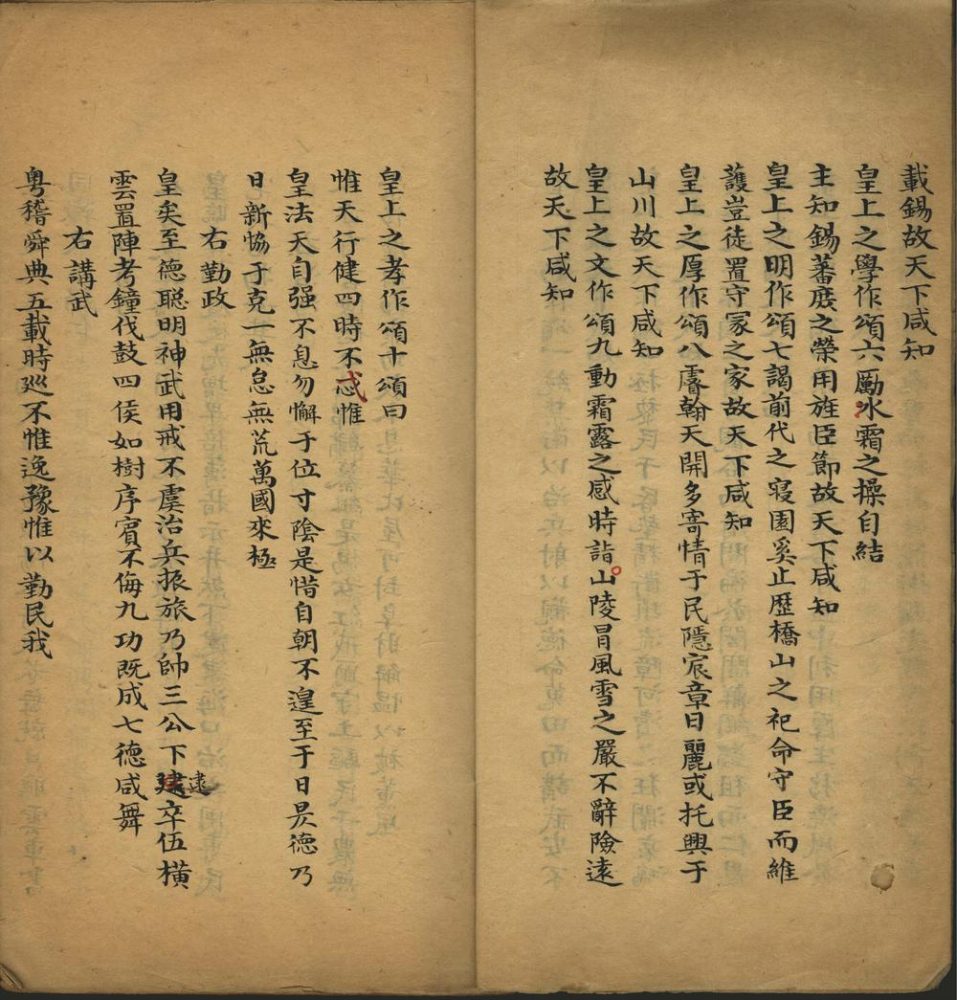 載錫故天下咸知
皇上之學作頌六勵冰霜之操自結
主知錫蕃庶之榮用旌臣節故天下咸知
皇上之明作頌七謁前代之寢園奚止歷橋山之祀命守臣而維
護豈徒置守冢之家故天下咸知
皇上之厚作頌八睿翰天開多寄情于民隱宸章日麗或托興于
山川故天下咸知
皇上之文作頌九動霜露之感時詣山陵冒風雪之嚴不辭險遠
故天下咸知
皇上之孝作頌十頌曰
惟天行健四時不忒惟
皇法天自强不息勿懈于位寸陰是惜自朝不遑至于日昃德乃
日新恊于克一無怠無荒萬國來極
右勤政
皇矣至德聰明神武用戒不虞治兵振旅乃帥三公下逮卒伍橫
雲置陣考鐘伐鼓四侯如樹序賓不侮九功既成七德咸舞
右講武
粤稽舜典五載時廵不惟逸豫惟以勤民我